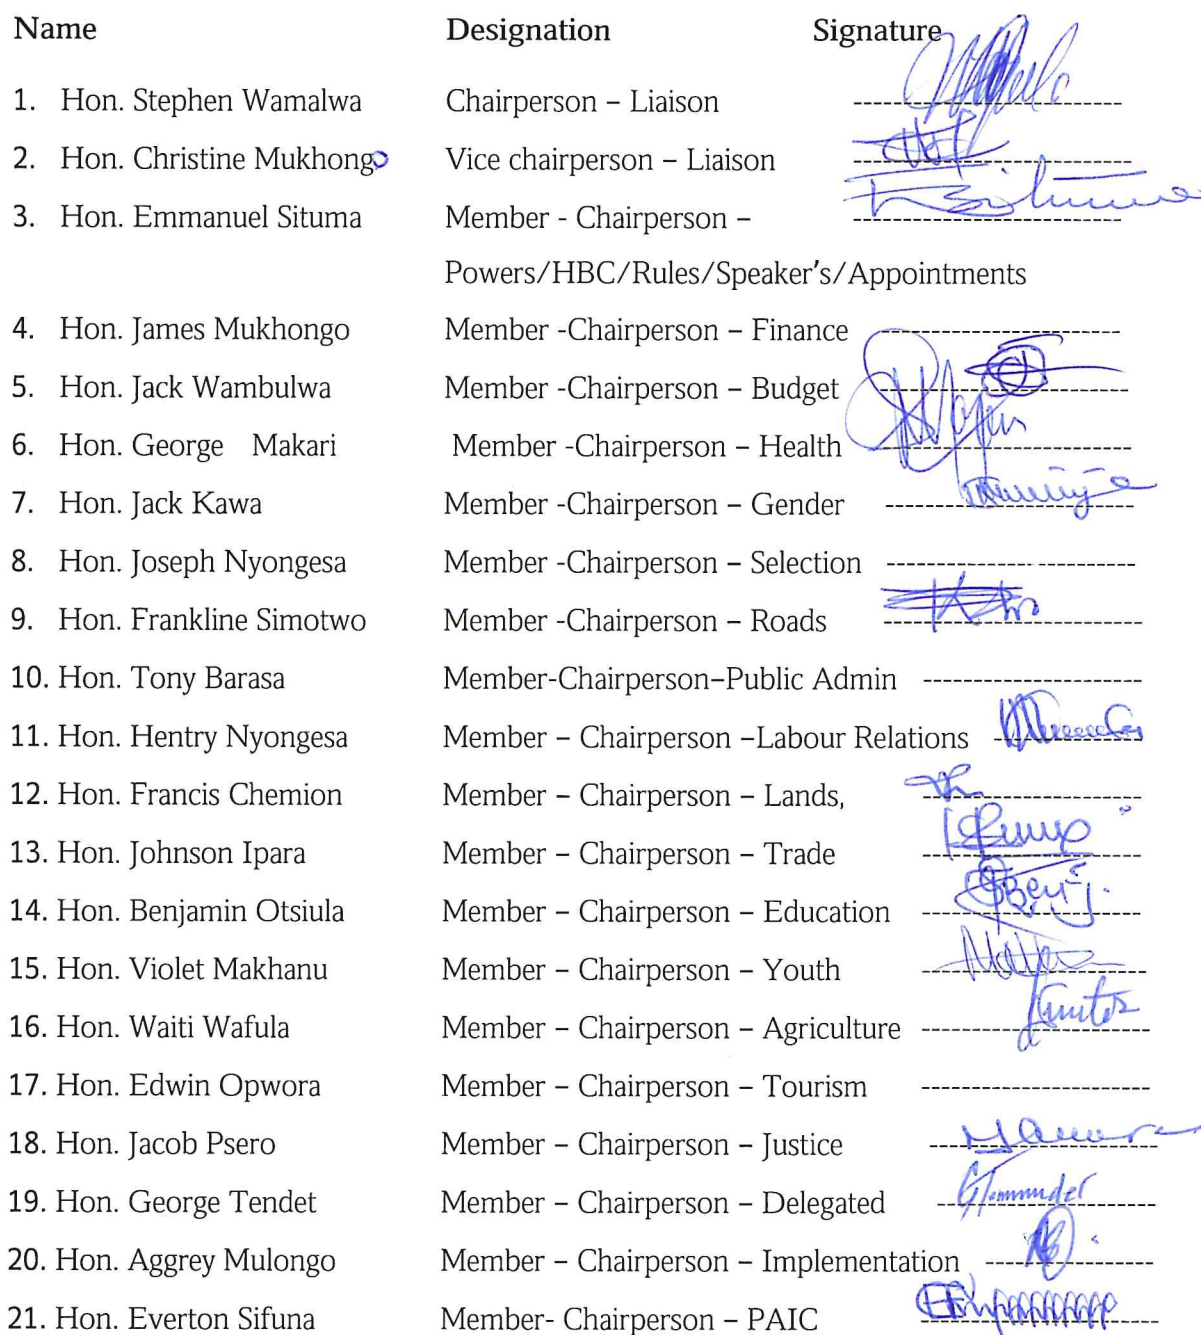 Name Designation Signature
1. Hon. Stephen Wamalwa Chairperson – Liaison
2. Hon. Christine Mukhongo Vice chairperson – Liaison
3. Hon. Emmanuel Situma Member - Chairperson –
Powers/HBC/Rules/Speaker's/Appointments
4. Hon. James Mukhongo Member -Chairperson – Finance
5. Hon. Jack Wambulwa Member -Chairperson – Budget
6. Hon. George Makari Member -Chairperson – Health
7. Hon. Jack Kawa Member -Chairperson – Gender
8. Hon. Joseph Nyongesa Member -Chairperson – Selection
9. Hon. Frankline Simotwo Member -Chairperson – Roads
10. Hon. Tony Barasa Member-Chairperson–Public Admin
11. Hon. Hentry Nyongesa Member – Chairperson –Labour Relations
12. Hon. Francis Chemion Member – Chairperson – Lands,
13. Hon. Johnson Ipara Member – Chairperson – Trade
14. Hon. Benjamin Otsiula Member – Chairperson – Education
15. Hon. Violet Makhanu Member – Chairperson – Youth
16. Hon. Waiti Wafula Member – Chairperson – Agriculture
17. Hon. Edwin Opwora Member – Chairperson – Tourism
18. Hon. Jacob Psero Member – Chairperson – Justice
19. Hon. George Tendet Member – Chairperson – Delegated
20. Hon. Aggrey Mulongo Member – Chairperson – Implementation
21. Hon. Everton Sifuna Member- Chairperson – PAIC